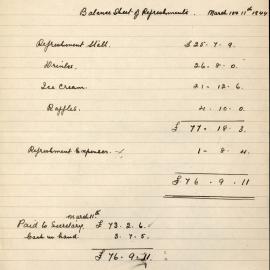 Balance Sheet of Refreshments. March 11th
Refreshment Stall. £25. 7. 9.
26. 8. 0.
Ice Cream. 21. 12. 6
Raffles. 4. 10. 0.
£ 77 - 18. 3.
Refreshment Expenses 1 - 8. 4.
£ 76 - 9. 11
March 11th
Paid to Secretary £ 73. 2. 6.
Cash in hand 3. 7. 5.
£76. 9. 11.